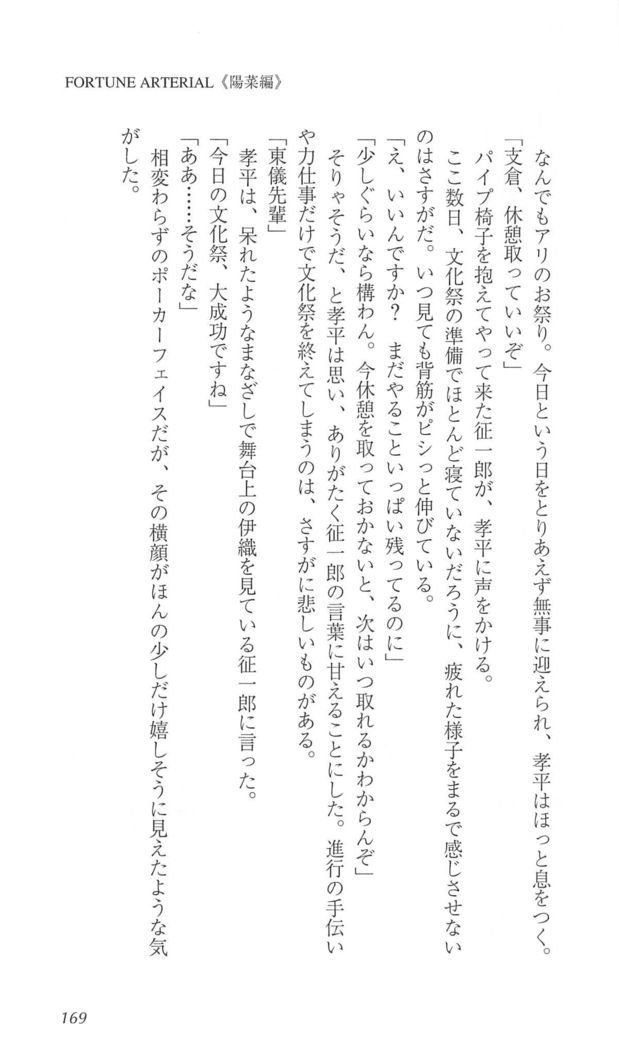 FORTUNE ARTERIAL《陽菜編》
なんでもアリのお祭り。今日という日をとりあえず無事に迎えられ、孝平はほっと息をつく。
「支倉、休憩取っていいぞ」
パイプ椅子を抱えてやって来た征一郎が、孝平に声をかける。
ここ数日、文化祭の準備でほとんど寝ていないだろうに、疲れた様子をまるで感じさせない
のはさすがだ。いつ見ても背筋がピシっと伸びている。
「え、いいんですか？　まだやることいっぱい残ってるのに」
「少しぐらいなら構わん。今休憩を取っておかないと、次はいつ取れるかわからんぞ」
そりゃそうだ、と孝平は思い、ありがたく征一郎の言葉に甘えることにした。進行の手伝い
や力仕事だけで文化祭を終えてしまうのは、さすがに悲しいものがある。
「東儀先輩」
孝平は、呆れたようなまなざしで舞台上の伊織を見ている征一郎に言った。
「今日の文化祭、大成功ですね」
「ああ……そうだな」
相変わらずのポーカーフェイスだが、その横顔がほんの少しだけ嬉しそうに見えたような気
がした。
169